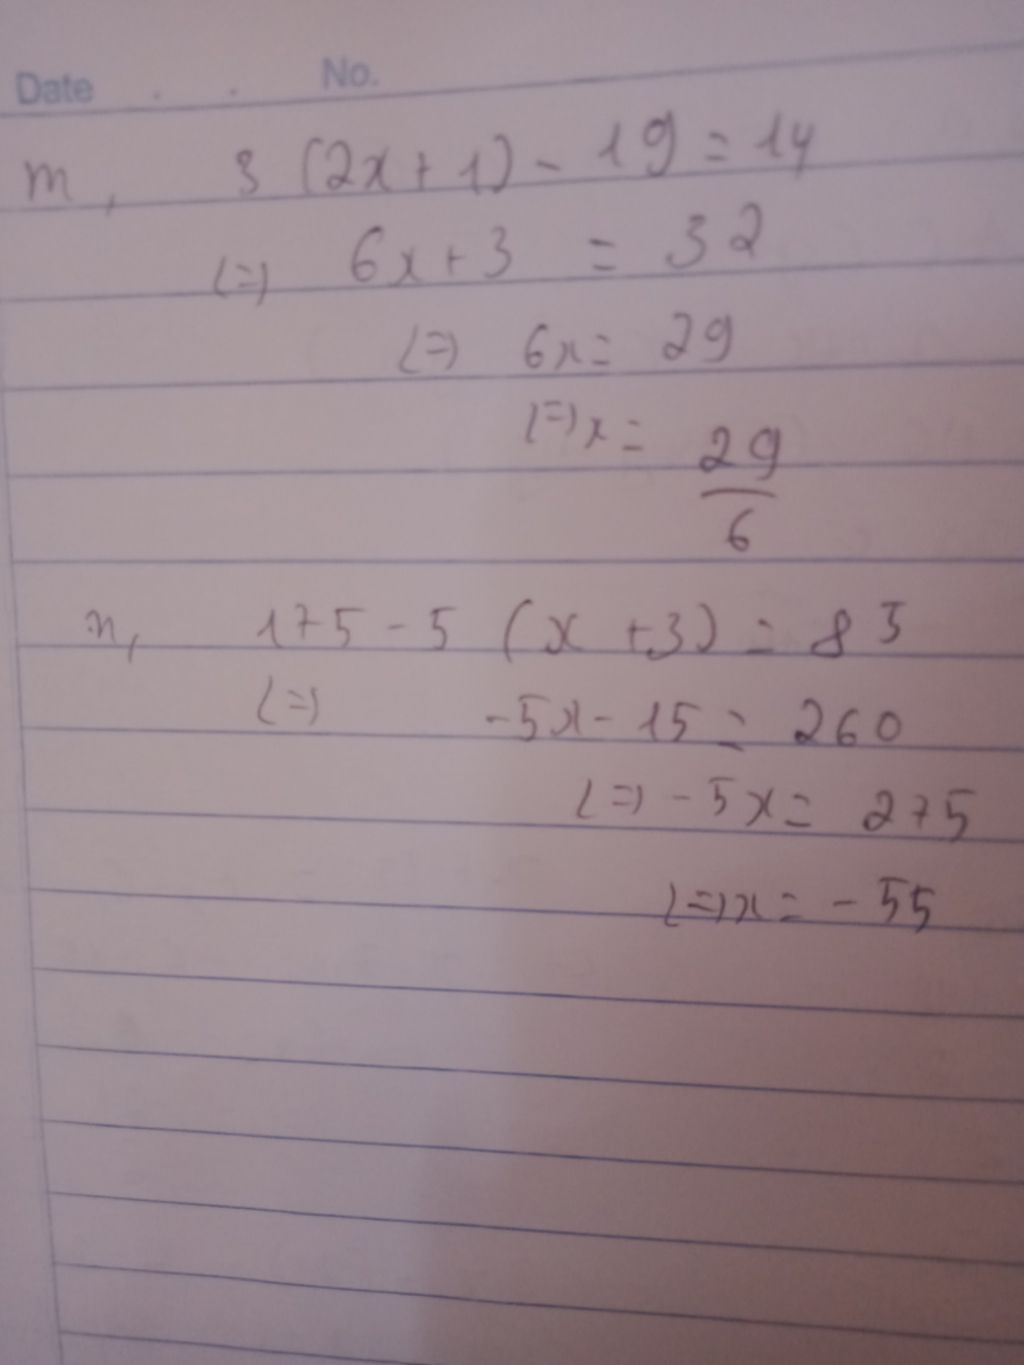 Date . . No.
m, 3 (2x + 1) - 19 = 14
(=) 6x + 3 = 32
(=) 6x = 29
(=) x = 29/6
n, 175 - 5 (x + 3) = 85
(=) -5x - 15 = 260
(=) -5x = 275
(=) x = -55